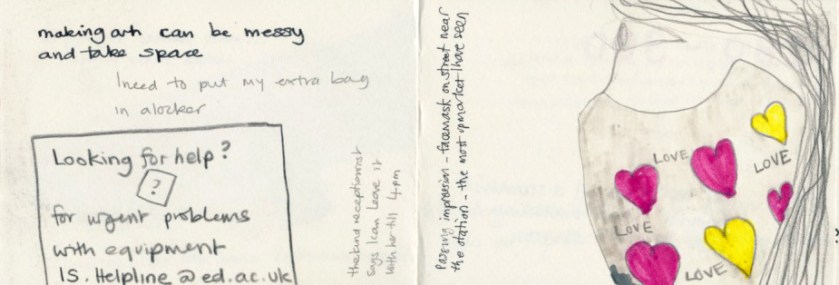 making art can be messy
and take space
I need to put my extra bag
in a locker
Looking for help?
?
for urgent problems
with equipment
IS.Helpline@ed.ac.uk
the kind receptionist
says I can leave it
with her till 4pm
Passing impression - facemask on street near
the station - the most upmarket I have seen
LOVE
LOVE
LOVE
LOVE